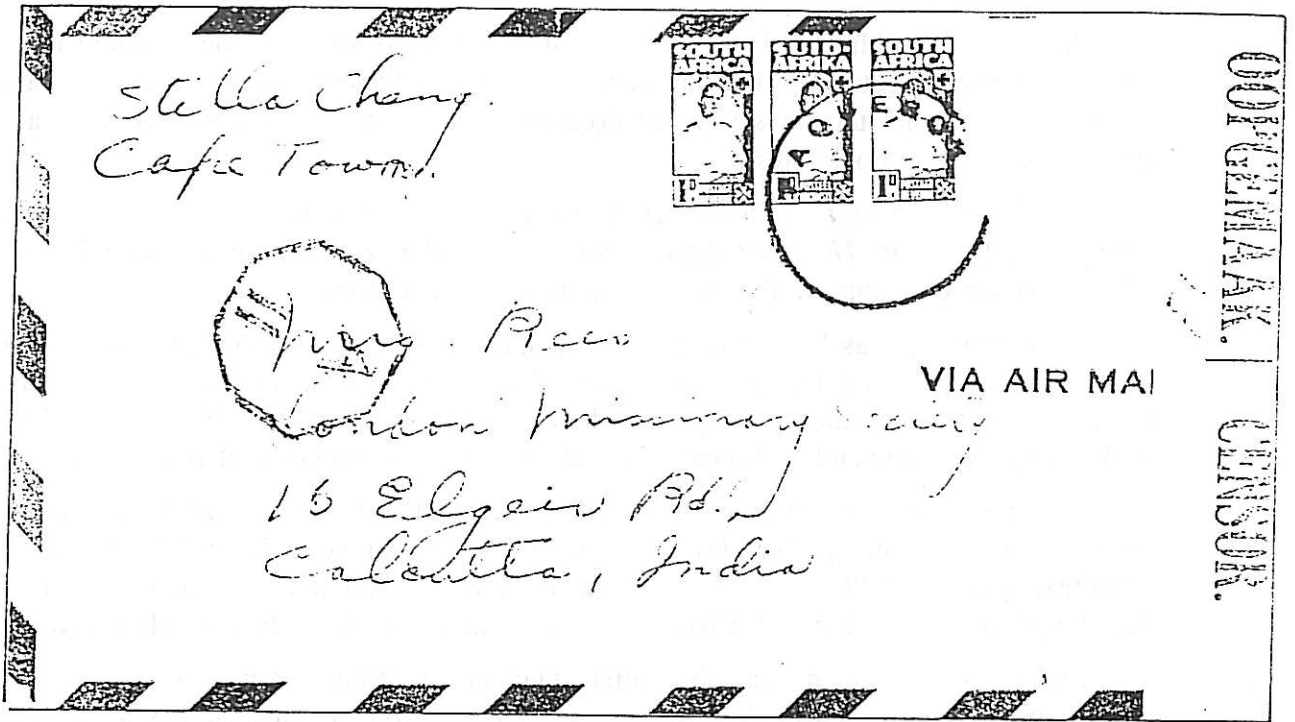 Stella Chang.
Cape Town.
SOUTH AFRICA
SUID AFRIKA
SOUTH AFRICA
1D
1D
Mrs. Rees
London Missionary Society
15 Elgein Rd.,
Calcutta, India
VIA AIR MAI
OOPGEMAAK.
CENSOR.